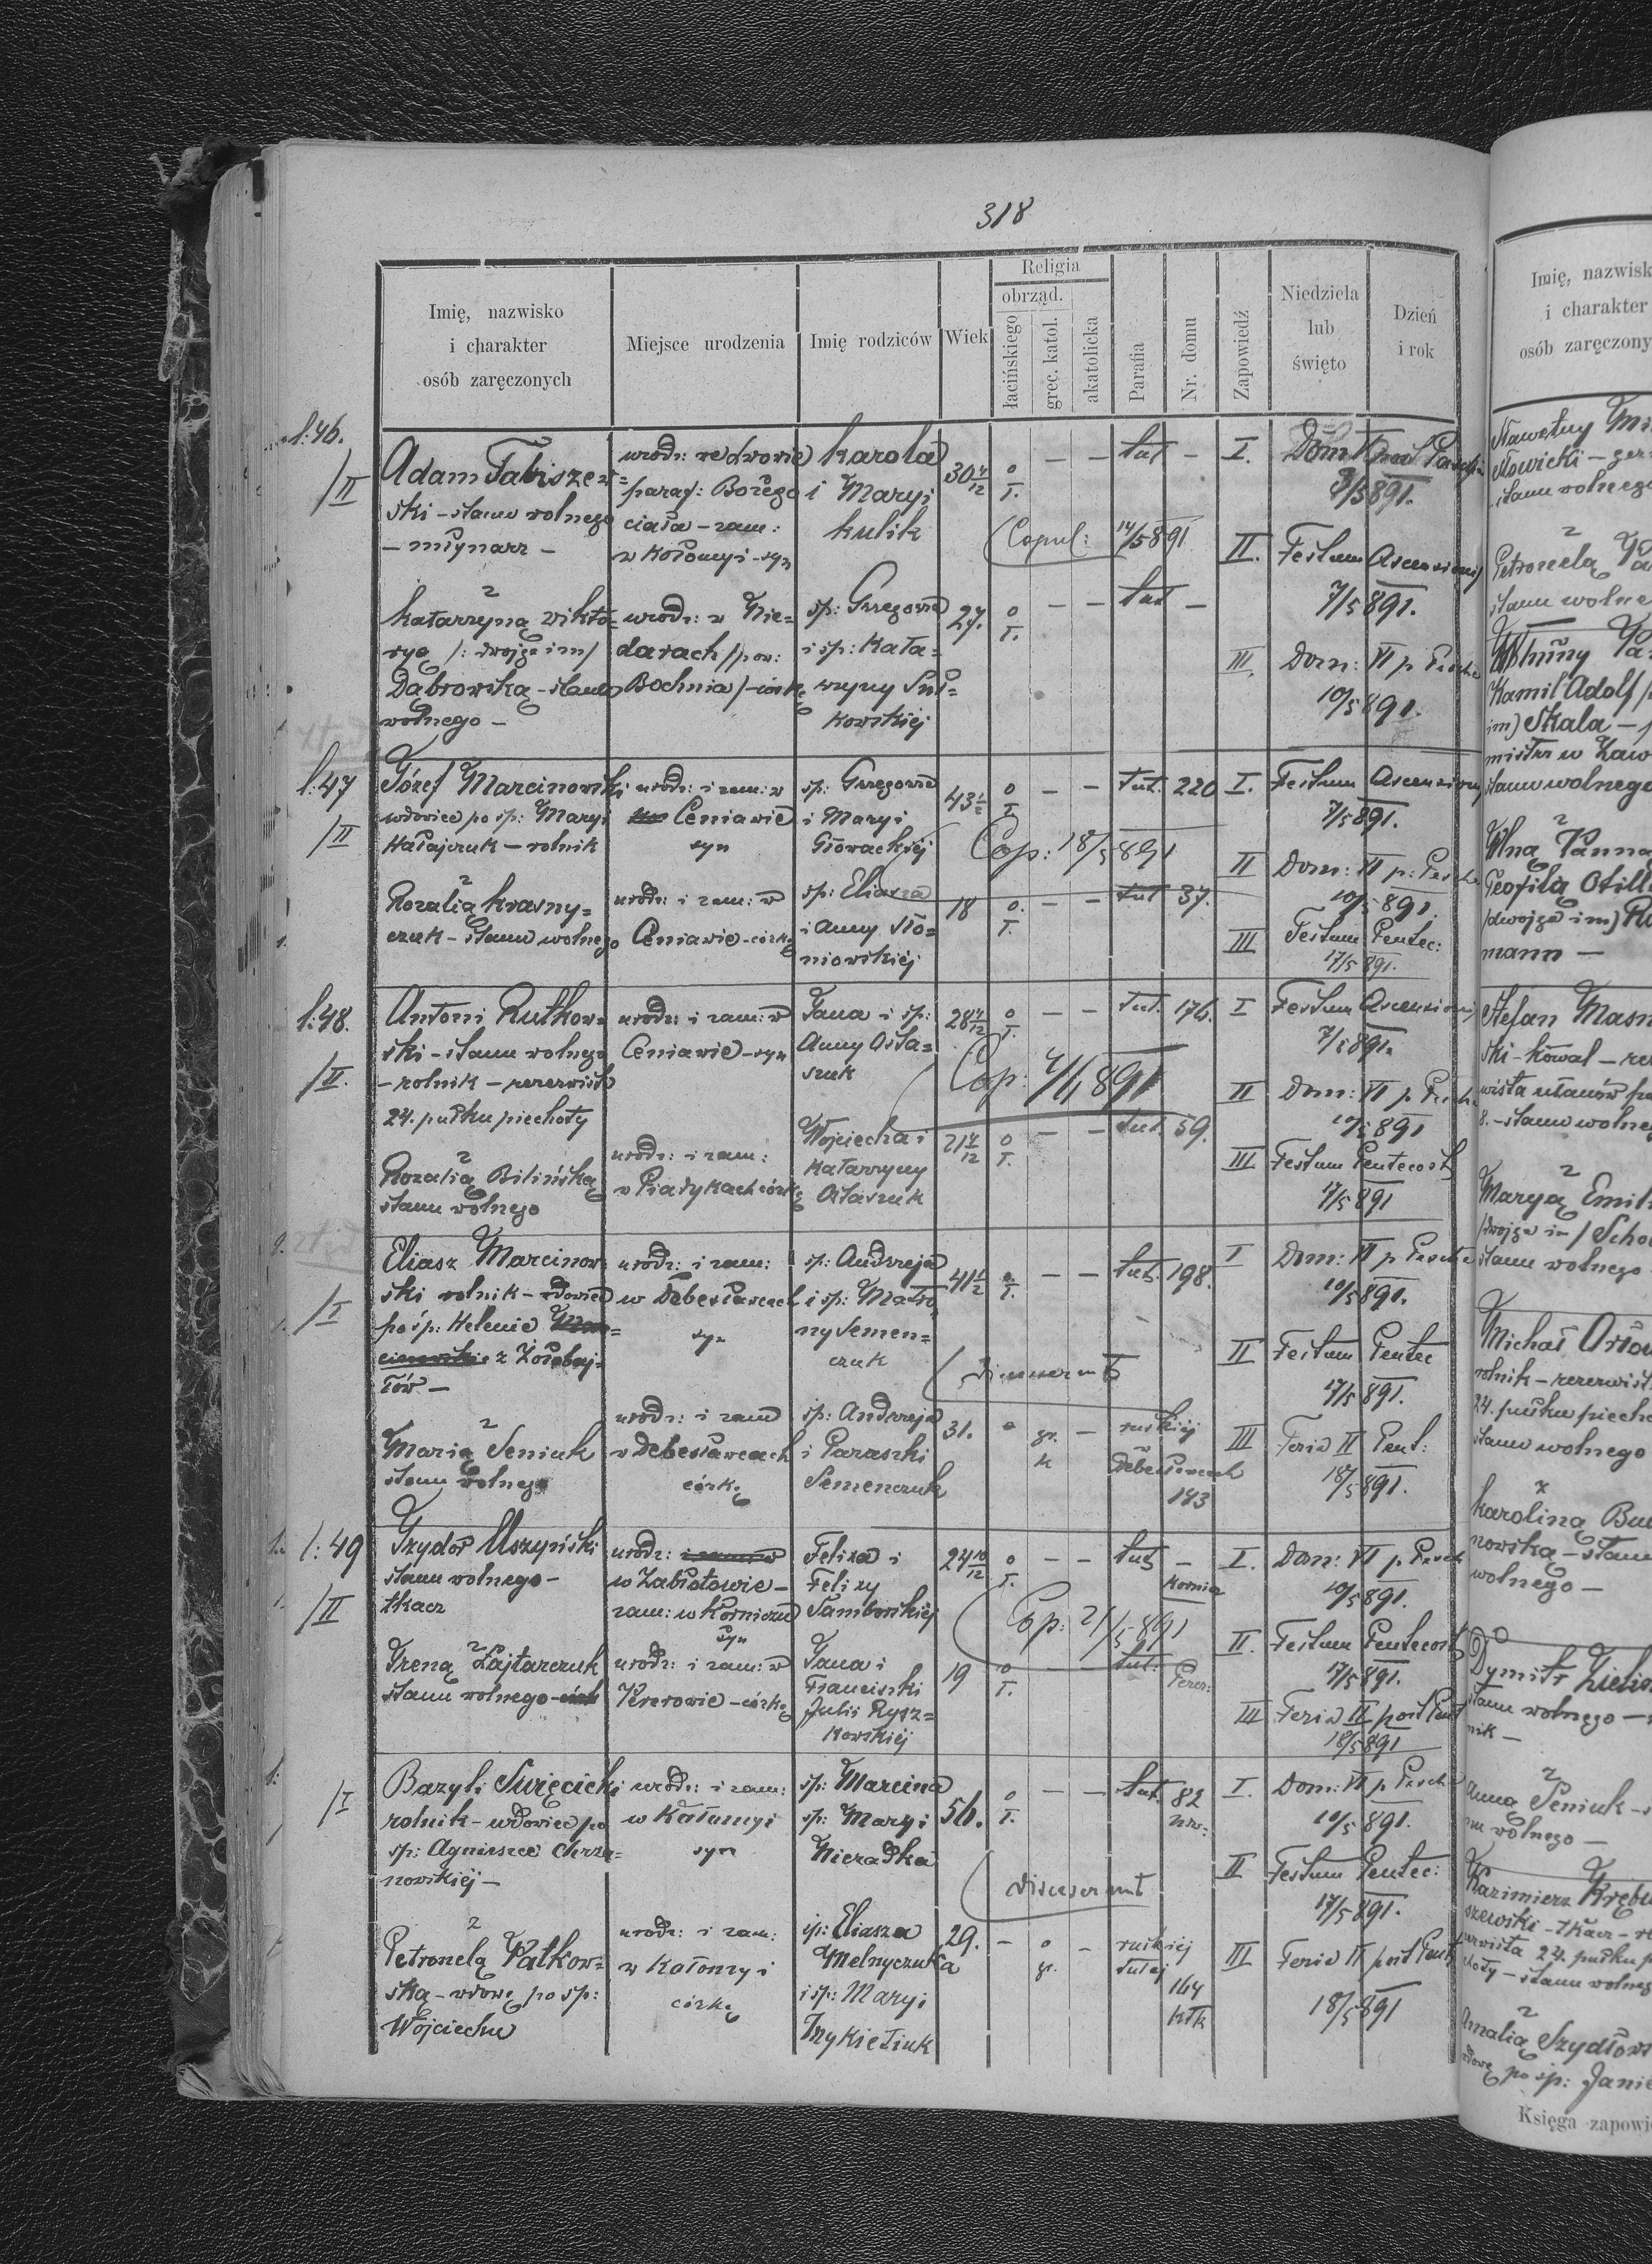 318
Imię, nazwisko
i charakter
osób zaręczonych
Miejsce urodzenia
Imię rodziców
Wiek
Religia
obrząd.
łacińskiego
grec. katol.
akatolicka
Parafia
Nr. domu
Zapowiedź
Niedziela
lub
święto
Dzień
i rok
l: 46.
/II
Adam Fabiszew=
ski - stanu wolnego
- młynarz -
urodz: we Lwowie
paraf: Bożego
ciała - zam:
w Kołomyi - syn
Karola
i Maryi
Kulik
30
o
T.
— —
tut —
I.
3/5 891.
Copul: 14/5 891
II. Festum Ascensionis
7/5 891.
z
Katarzyną Wikto=
ryą /: dwojga im/
Dąbrowską - stanu
wolnego -
urodz: w Nie=
darach /pow:
Bochnia/ - córkę
sp: Grzegorza
i sp: Kata=
rzyny
kowskiéj
27.
o
T.
— —
tut —
III. Dom: VI p Pascha
10/5 891.
l: 47
/II
Józef Marcinowski
wdowiec po sp: Maryi
Hałajczuk - rolnik
urodz: i zam: w
Ceniawie
syn
sp: Grzegorza
i Maryi
Głowackiéj
43 ½
o
T.
— —
Tut. 220
I. Festum Ascensionis
7/5 891.
Cop: 18/5 891
II Dom: VI p: Pascha
10/5 891.
z
Rozalią Krasny=
czuk - stanu wolnego
urodz: i zam: w
Ceniawie - córkę
sp: Eliasza
i Anny Sło=
niowskiéj
18
o.
T.
— —
tut 37.
III Festum Pentec:
17/5 891.
l: 48.
/II.
Antoni Rutkow=
ski - stanu wolnego
- rolnik - rezerwista
24. pułku piechoty
urodz: i zam: w
Ceniawie - syn
Jana i sp:
Anny Osta=
szuk
28
o
T.
— —
Tut. 176.
I Festum Ascensionis
7/5 891.
Cop: 891
II Dom: VI p Pascha
10/5 891
z
Rozalią Bilińską
stanu wolnego
urodz: i zam:
w Piadykach córkę
Wojciecha i
Katarzyny
Ostaszuk
21
o
T.
— —
tut. 59.
III Festum Pentecost
17/5 891
/I
Eliasz Marcinow=
ski rolnik - wdowiec
po śp: Helenie
z
urodz: i zam:
w Debesławcach
syn
sp: Andrzeja
i sp:
ny Semen=
czuk
41 ½
o
T.
— —
tut. 198.
I Dom: VI p Pascha
10/5 891.
Discuserunt
II Festum Pentec
17/5 891.
z
Marią Seniuk
stanu wolnego
urodz: i zam
w Debesławcach
córkę
sp: Andrzeja
i Paraszki
Semenczuk
31.
o
gr.
k
—
ruskiéj
Debesławcach
183
III Feria II Pent:
18/5 891.
l: 49
/II
Izydor Uszyński
stanu wolnego -
tkacz
urodz: i zam: w
w Zabłotowie -
zam: w Korniczu
syn
Felixa i
Felixy
Samborskiéj
24 10/12
o
T.
— —
tut —
Kornicz
I. Dom: VI p. Pasch
10/5 891.
Cop: 21/5 891
II. Festum Pentecost
17/5 891.
z
Ireną Zajtarczuk
stanu wolnego - córk
urodz: i zam: w
Perorowie - córkę
Jana i
Franciszki
Julii Rysz=
kowskiéj
19
o
T.
— —
tut:
Perer:
III Feria II post Pent
18/5 891
/I
Bazyli Swięcicki
rolnik - wdowiec po
sp: Agnieszce Chrza=
nowskiéj -
urodz: i zam:
w Kołomyi
syn
sp: Marcina
sp: Maryi
Nieradka
56.
o
T.
— —
tut. 82
I. Dom: VI p Pascha
10/5 891.
Discuserunt
II Festum Pentec:
17/5 891.
z
Petronelą Patkow=
ską - wdowę po sp:
Wojciechu
urodz: i zam:
w Kołomyi
córkę
sp: Eliasza
Melnyczuka
i sp: Maryi
Trzykietiuk
29.
—
o
gr.
—
ruskiéj
tutej
164
III Feria II post Pent
18/5 891
Imię, nazwisk
i charakter
osób zaręczony
Sławetny
stanu wolnego
z
Petronelą
stanu wolne
Kamil Adolf
im) Skala -
mistrz w
stanu wolnego
z
Wlną Panna
Teofila Otill
/dwojga im)
mann -
Stefan
ski - kowal -
wista ułanów
8. - stanu wolneg
z
Maryą Emil
/dwojga im/
stanu wolnego
Michał
rolnik - rezerwist
24. pułku piecho
stanu wolnego
z
Karoliną
nowską - stanu
wolnego -
Dymitr
stanu wolnego -
nik -
z
Anna Seniuk -
nu wolnego -
Kazimierz
szewski - tkacz -
zerwista 24. pułku
choty - stanu wolneg
z
Amalią Szydłow
wdowę po sp: Janie
Księga zapowi